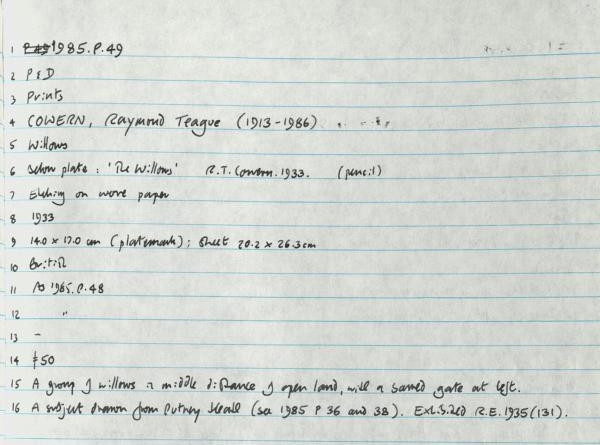 1 P.49 1985.P.49
2 P&D
3 Prints
4 COWERN, Raymond Teague (1913-1986)
5 Willows
6 Below plate: 'The Willows' R.T. Cowern. 1933. (pencil)
7 Etching on wove paper
8 1933
9 14.0 x 17.0 cm (platemark); sheet 20.2 x 26.3 cm
10 British
11 As 1985.P.48
12 "
13 -
14 50
15 A group of willows in middle distance of open land, with a gate at left.
16 A subject drawn from Putney Heath (see 1985 P 36 and 38). Exhibited R.E. 1935 (131).